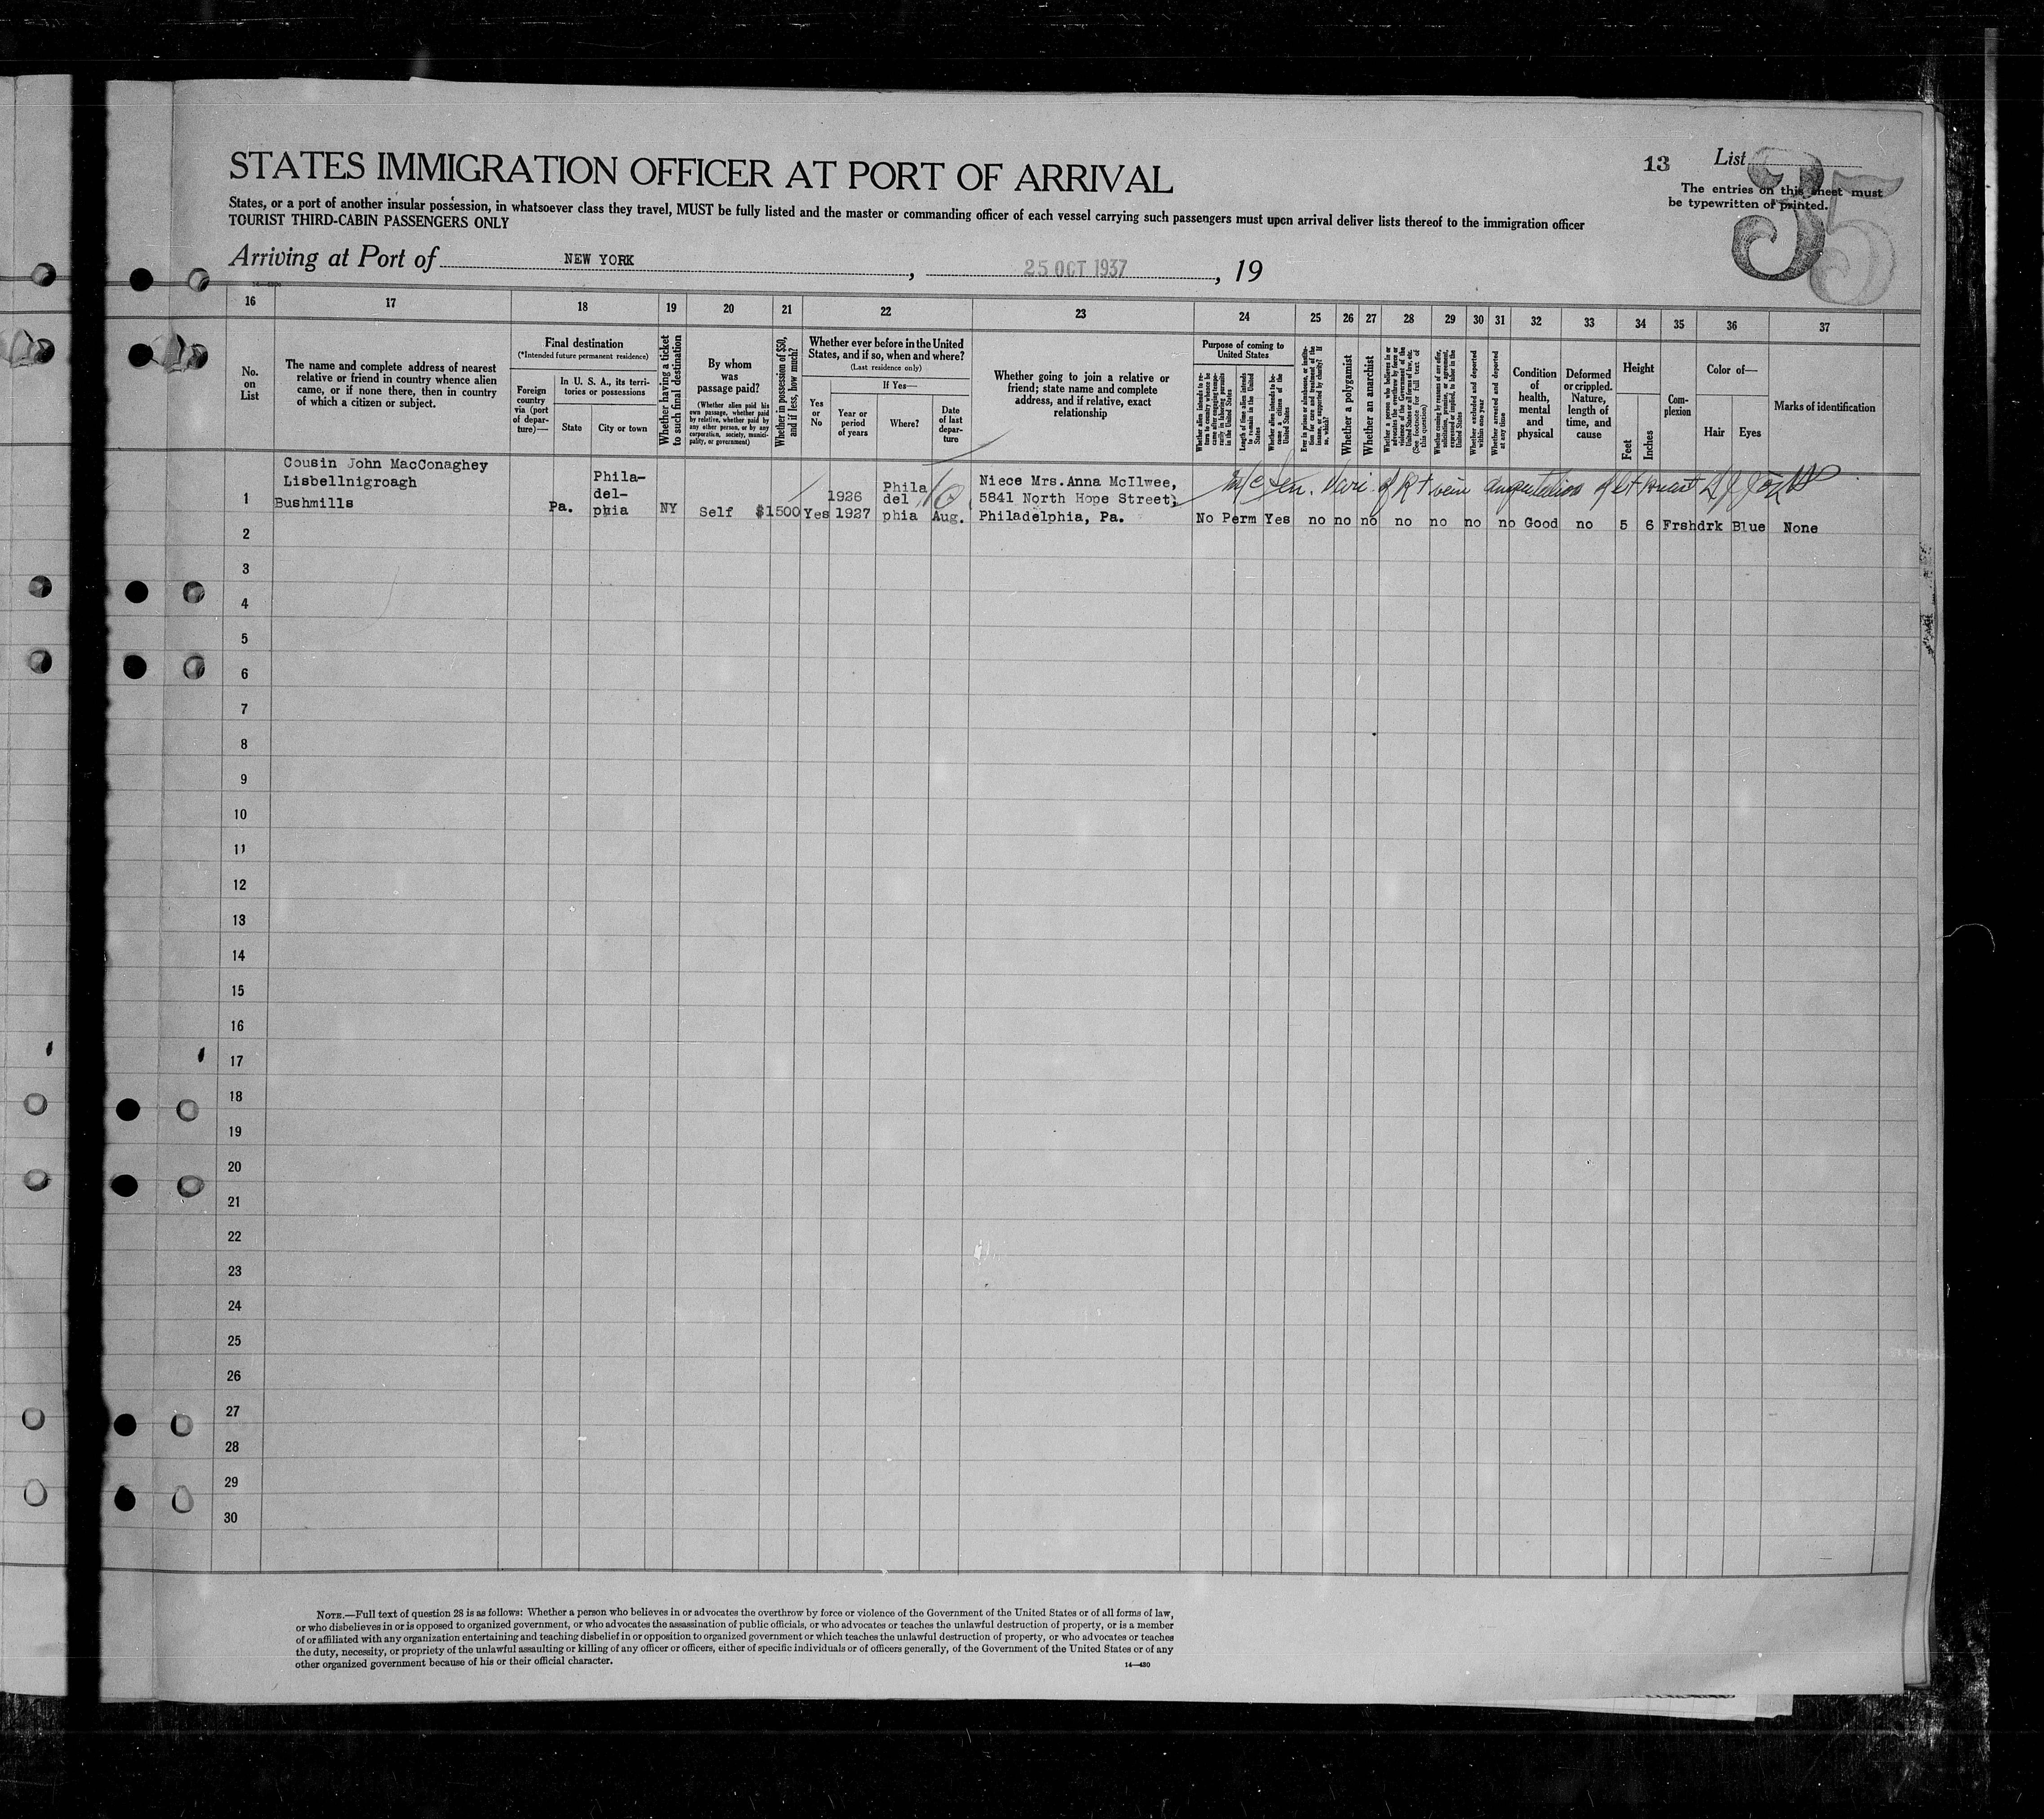 STATES IMMIGRATION OFFICER AT PORT OF ARRIVAL
13 List
35
The entries on this sheet must
be typewritten or printed.
States, or a port of another insular possession, in whatsoever class they travel, MUST be fully listed and the master or commanding officer of each vessel carrying such passengers must upon arrival deliver lists thereof to the immigration officer
TOURIST THIRD-CABIN PASSENGERS ONLY
Arriving at Port of NEW YORK, 25 OCT 1937, 19
16 17 18 19 20 21 22 23 24 25 26 27 28 29 30 31 32 33 34 35 36 37
No.
on
List
The name and complete address of nearest
relative or friend in country whence alien
came, or if none there, then in country
of which a citizen or subject.
Final destination
(*Intended future permanent residence)
Foreign
country
via (port
of depar-
ture)—
In U. S. A., its terri-
tories or possessions
State
City or town
Whether having a ticket
to such final destination
By whom
was
passage paid?
(Whether alien paid his
own passage, whether paid
by relative, whether paid by
any other person, or by any
corporation, society, munici-
pality, or government)
Whether in possession of $50,
and if less, how much?
Whether ever before in the United
States, and if so, when and where?
(Last residence only)
Yes
or
No
If Yes—
Year or
period
of years
Where?
Date
of last
depar-
ture
Whether going to join a relative or
friend; state name and complete
address, and if relative, exact
relationship
Purpose of coming to
United States
Whether alien intends to re-
turn to country whence he
came after engaging tempo-
rarily in labor pursuits
in the United States
Length of time alien intends
to remain in the United
States
Whether alien intends to be-
come a citizen of the
United States
Ever in prison or almshouse, or institu-
tion for care and treatment of the
insane, or supported by charity? If
so, which?
Whether a polygamist
Whether an anarchist
Whether a person who believes in or
advocates the overthrow by force or
violence of the Government of the
United States or all forms of law, etc.
(See footnote for full text of
this question)
Whether coming by reasons of any offer,
solicitation, promise, or agreement,
expressed or implied, to labor in the
United States
Whether excluded and deported
within one year
Whether arrested and deported
at any time
Condition
of
health,
mental
and
physical
Deformed
or crippled.
Nature,
length of
time, and
cause
Height
Feet
Inches
Com-
plexion
Color of—
Hair
Eyes
Marks of identification
1
Cousin John MacConaghey
Lisbellnigroagh
Bushmills
Pa.
Phila-
del-
phia
NY
Self
$1500
Yes
1926
1927
Phila
del
phia
Aug.
Niece Mrs.Anna McIlwee,
5841 North Hope Street,
Philadelphia, Pa.
Vari. of Rt vein amputation of Lt breast
No Perm Yes no no no no no no no Good no 5 6 Frsh drk Blue None
2
3
4
5
6
7
8
9
10
11
12
13
14
15
16
17
18
19
20
21
22
23
24
25
26
27
28
29
30
NOTE.—Full text of question 28 is as follows: Whether a person who believes in or advocates the overthrow by force or violence of the Government of the United States or of all forms of law,
or who disbelieves in or is opposed to organized government, or who advocates the assassination of public officials, or who advocates or teaches the unlawful destruction of property, or is a member
of or affiliated with any organization entertaining and teaching disbelief in or opposition to organized government or which teaches the unlawful destruction of property, or who advocates or teaches
the duty, necessity, or propriety of the unlawful assaulting or killing of any officer or officers, either of specific individuals or of officers generally, of the Government of the United States or of any
other organized government because of his or their official character.
14—430